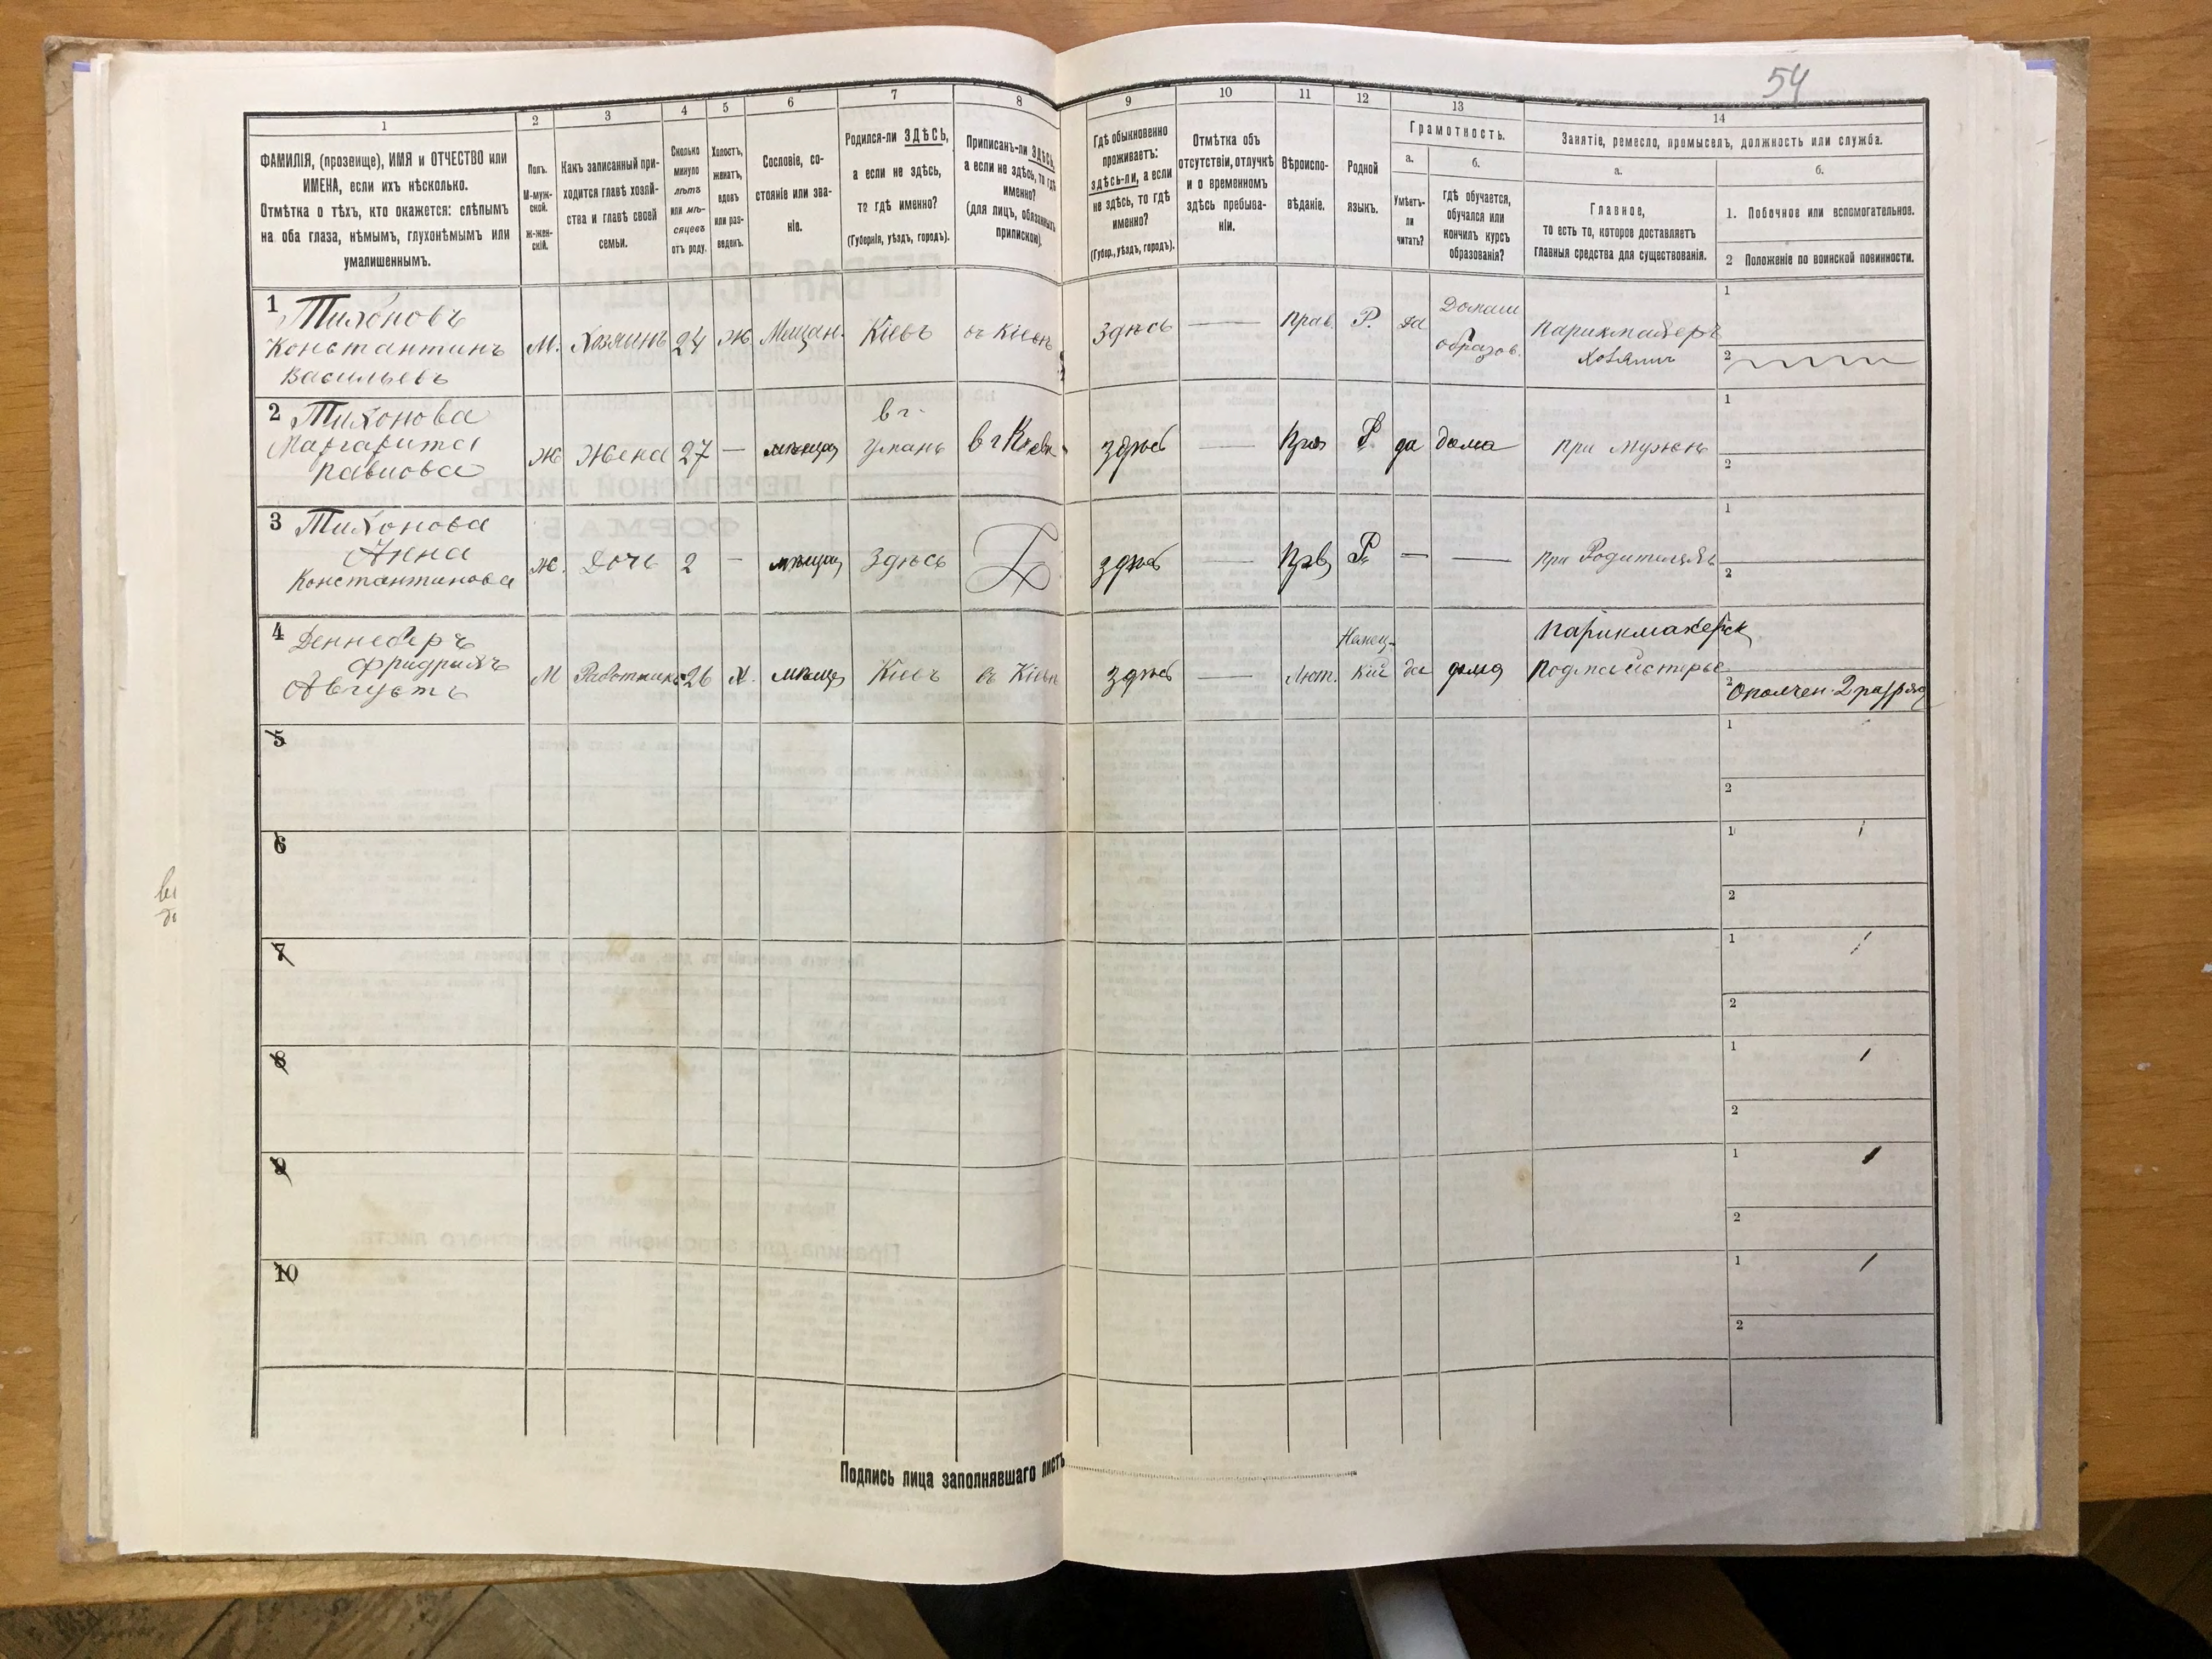 54
1
2
3
4
5
6
7
8
9
10
11
12
13
14
ФАМИЛІЯ, (прозвище), ИМЯ и ОТЧЕСТВО или
ИМЕНА, если ихъ нѣсколько.
Отмѣтка о тѣхъ, кто окажется: слѣпымъ
на оба глаза, нѣмымъ, глухонѣмымъ или
умалишеннымъ.
Полъ.
М-муж-
ской.
ж-жен-
скій.
Какъ записанный при-
ходится главѣ хозяй-
ства и главѣ своей
семьи.
Сколько
минуло
лѣтъ
или мѣ-
сяцевъ
отъ роду.
Холостъ,
женатъ,
вдовъ
или раз-
веденъ.
Сословіе, со-
стояніе или зва-
ніе.
Родился-ли ЗДѢСЬ,
а если не здѣсь,
то гдѣ именно?
(Губернія, уѣздъ, городъ).
Приписанъ-ли ЗДѢСЬ,
а если не здѣсь, то гдѣ
именно?
(для лицъ, обязанныхъ
припискою).
Гдѣ обыкновенно
проживаетъ:
здѣсь-ли, а если
не здѣсь, то гдѣ
именно?
(Губер., уѣздъ, городъ).
Отмѣтка объ
отсутствіи, отлучкѣ
и о временномъ
здѣсь пребыва-
ніи.
Вѣроиспо-
вѣданіе.
Родной
языкъ.
Грамотность.
а.
Умѣетъ-
ли
читать?
б.
гдѣ обучается,
обучался или
кончилъ курсъ
образованія?
Занятіе, ремесло, промыселъ, должность или служба.
а.
Главное,
то есть то, которое доставляетъ
главныя средства для существованія.
б.
1. Побочное или вспомогательное.
2 Положеніе по воинской повинности.
1
Тихоновъ
Константинъ
Васильевъ
М. Хозяинъ 24 Ж Мещан. Кіевъ въ Кіевѣ
здѣсь — Прав. Р. да Домаш
образов.
Парикмахеръ
Хозяинъ
1
2
2 Тихонова
Маргарита
Павлова
Ж Жена 27 — мѣщан
в г.
Умань
в г Кіевѣ
здѣсь — Прав Р. да дома при Мужѣ
1
2
3 Тихонова
Анна
Константинова
Ж. Дочь 2 — мѣщан здѣсь
здѣсь — Прав Р. — — при Родителяхъ
1
2
4 Деннеберъ
Фридрихъ
Августъ
М Работникъ 26 Х. мѣщан Кіевъ въ Кіевѣ
здѣсь — Лют. Немец-
кій да дома
Парикмахерск
Подмастерье
2 Ополчен. 2 разряд
5
1
2
6
1
2
7
1
2
8
1
2
9
1
2
10
1
2
Подпись лица заполнявшаго листъ